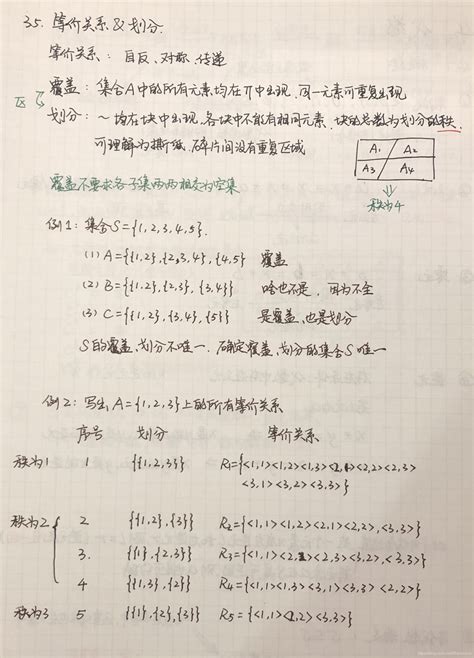 35. 等价关系 & 划分.
等价关系: 自反、对称、传递
区 覆盖: 集合A中的所有元素均在π中出现, 同一元素可重复出现
划分: ~ 均在块中出现, 各块中不能有相同元素, 块的总数为划分的秩.
可理解为撕纸, 碎片间没有重复区域
A₁ A₂
A₃ A₄
秩为4
覆盖不要求各子集两两相交为空集
例1: 集合S={1,2,3,4,5}.
(1) A={{1,2},{2,3,4},{4,5} 覆盖
(2) B={{1,2},{2,3},{3,4}} 啥也不是, 因为不全
(3) C={{1,2},{3,4},{5}} 是覆盖、也是划分
S的覆盖、划分不唯一. 确定覆盖、划分的集合S唯一
例2: 写出A={1,2,3}上的所有等价关系
序号 划分 等价关系
秩为1 1 {{1,2,3}} R₁={<1,1><1,2><1,3><2,1><2,2><2,3>
<3,1><3,2><3,3>}
秩为2 2 {{1,2},{3}} R₂={<1,1><1,2><2,1><2,2>,<3,3>}
3. {{1},{2,3}} R₃={<1,1><2,2><2,3><3,2>,<3,3>}
4 {{1,3},{2}} R₄={<1,1><1,3><3,1><3,3><2,2>}
秩为3 5 {{1},{2},{3}} R₅={<1,1><2,2><3,3>}